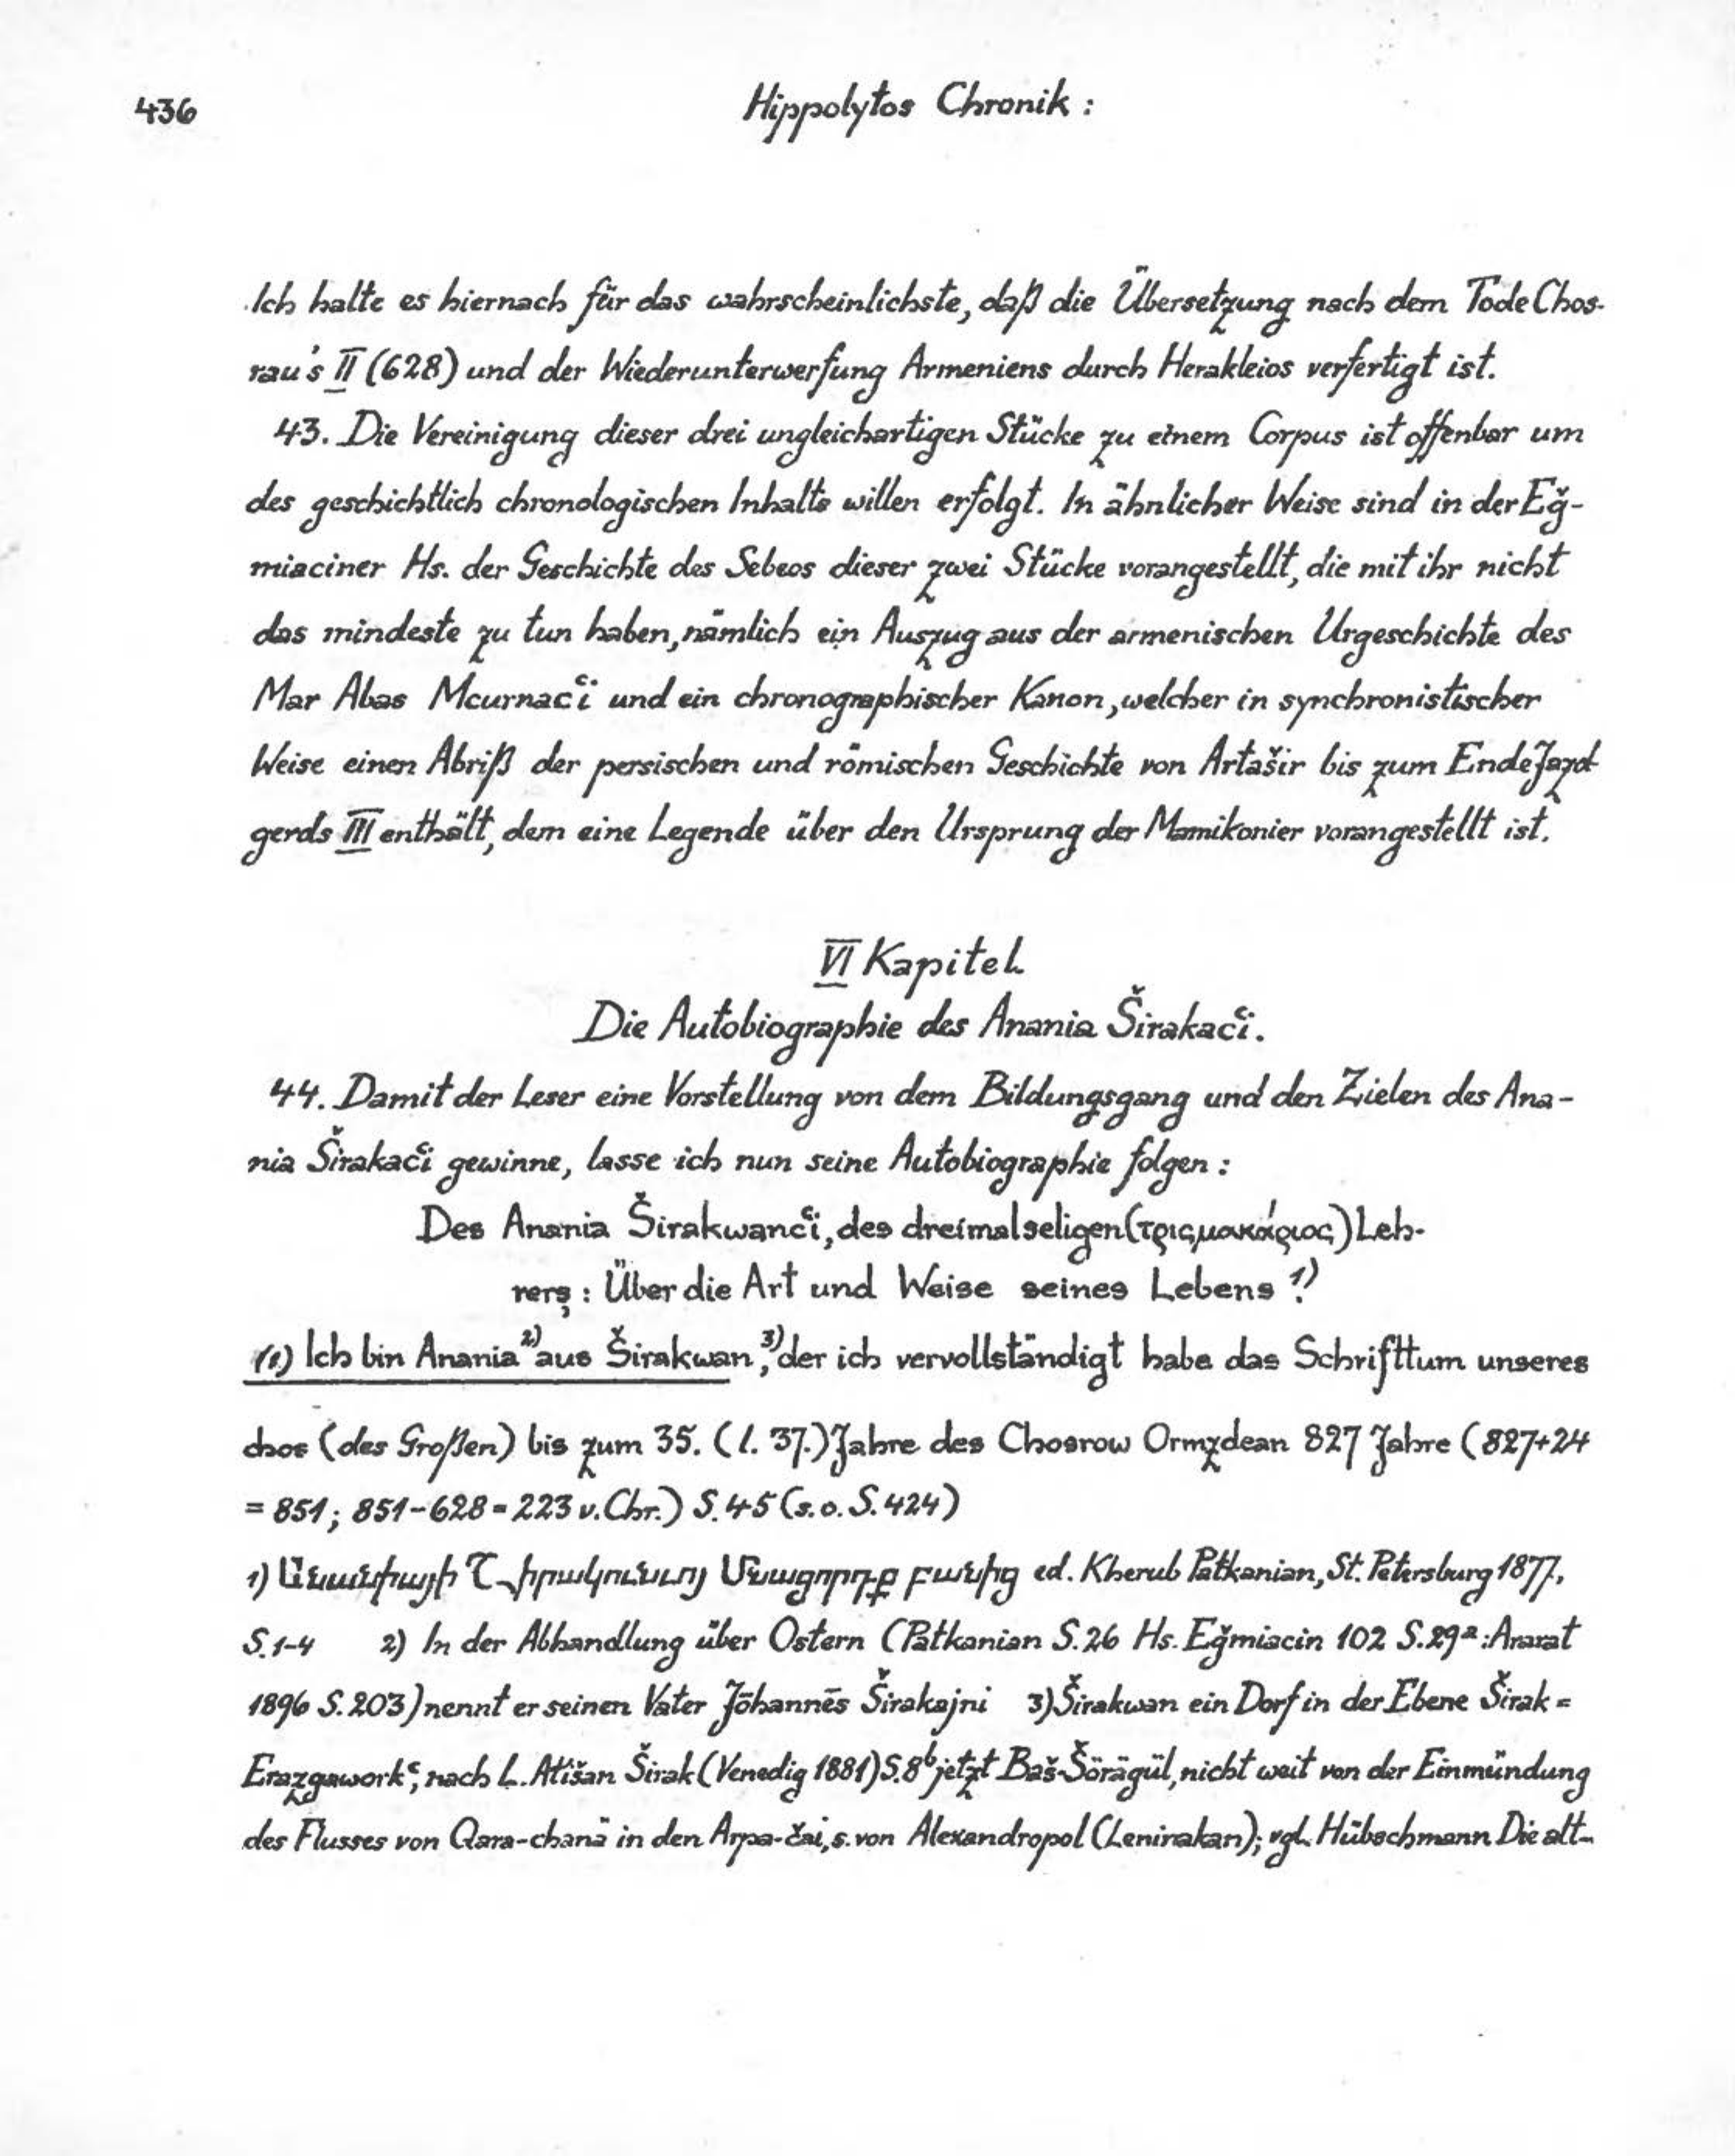 436
Hippolytos Chronik :
Ich halte es hiernach für das wahrscheinlichste, daß die Übersetzung nach dem Tode Chos-
rau's II (628) und der Wiederunterwerfung Armeniens durch Herakleios verfertigt ist.
43. Die Vereinigung dieser drei ungleichartigen Stücke zu einem Corpus ist offenbar um
des geschichtlich chronologischen Inhalts willen erfolgt. In ähnlicher Weise sind in der Eǧ-
miaciner Hs. der Geschichte des Sebeos dieser zwei Stücke vorangestellt, die mit ihr nicht
das mindeste zu tun haben, nämlich ein Auszug aus der armenischen Urgeschichte des
Mar Abas Mcurnacʿi und ein chronographischer Kanon, welcher in synchronistischer
Weise einen Abriß der persischen und römischen Geschichte von Artašir bis zum Ende Jazd-
gerds III enthält, dem eine Legende über den Ursprung der Mamikonier vorangestellt ist.
VI Kapitel.
Die Autobiographie des Anania Širakacʿi.
44. Damit der Leser eine Vorstellung von dem Bildungsgang und den Zielen des Ana-
nia Širakacʿi gewinne, lasse ich nun seine Autobiographie folgen :
Des Anania Širakwancʿi, des dreimalseligen (τριςμακάριος) Leh-
rers : Über die Art und Weise seines Lebens 1)
(1) Ich bin Anania 2) aus Širakwan, 3) der ich vervollständigt habe das Schrifttum unseres
chos (des Großen) bis zum 35. (l. 37.) Jahre des Chosrow Ormzdean 827 Jahre (827+24
= 851; 851-628 = 223 v. Chr.) S. 45 (s. o. S. 424)
1) Անանիայի Շիրակունւոյ Մնացորդք բանից ed. Kherub Patkanian, St. Petersburg 1877,
S. 1-4 2) In der Abhandlung über Ostern (Patkanian S. 26 Hs. Eǧmiacin 102 S. 29ª : Ararat
1896 S. 203) nennt er seinen Vater Jōhannēs Širakajni 3) Širakwan ein Dorf in der Ebene Širak =
Erazgaworkʿ, nach L. Ališan Širak (Venedig 1881) S. 8ᵇ jetzt Baš-Šörägül, nicht weit von der Einmündung
des Flusses von Qara-chanä in den Arpa-čai, s. von Alexandropol (Leninakan); vgl. Hübschmann Die alt-